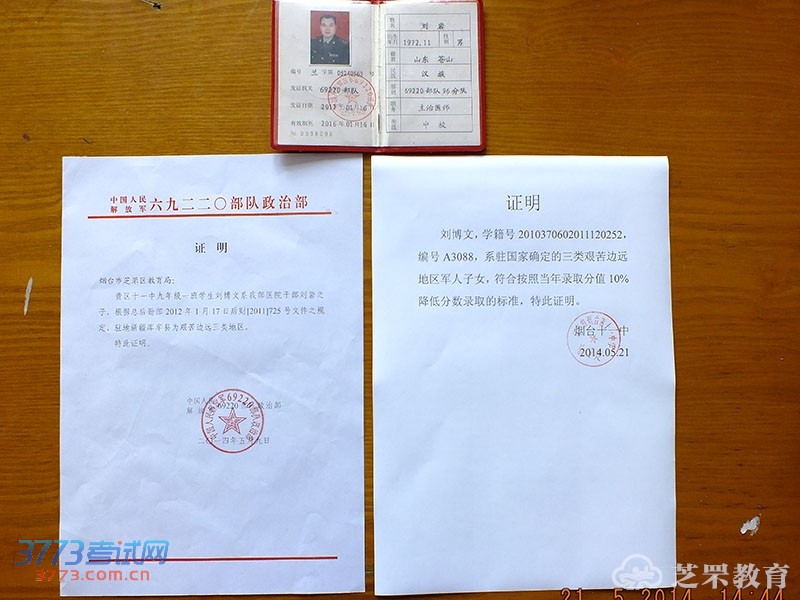 姓名 刘岩
出生年月 1972.11 性别 男
籍贯 山东 苍山
民族 汉族
部别 69220部队96分队
职务 主治医师
衔级 中校
编号 兰 字第 09240563 号
发证机关 69220部队
发证日期 2012年01月16日
有效期到 2016年01月16日
中国人民解放军 六九二二〇部队政治部
证 明
烟台市芝罘区教育局:
贵区十一中九年级一班学生刘博文系我部医院干部刘岩之
子,根据总后勤部2012年1月17日后财[2011]725号文件之规
定,驻地新疆库车县为艰苦边远三类地区。
特此证明。
中国人民解放军 69220部队政治部
二〇一四年五月九日
证明
刘博文,学籍号2010370602011120252,
编号A3088,系驻国家确定的三类艰苦边远
地区军人子女,符合按照当年录取分值10%
降低分数录取的标准,特此证明。
烟台十一中
2014.05.21
3773考试网
3773.com.cn
芝罘教育
21 5 2014 14:44